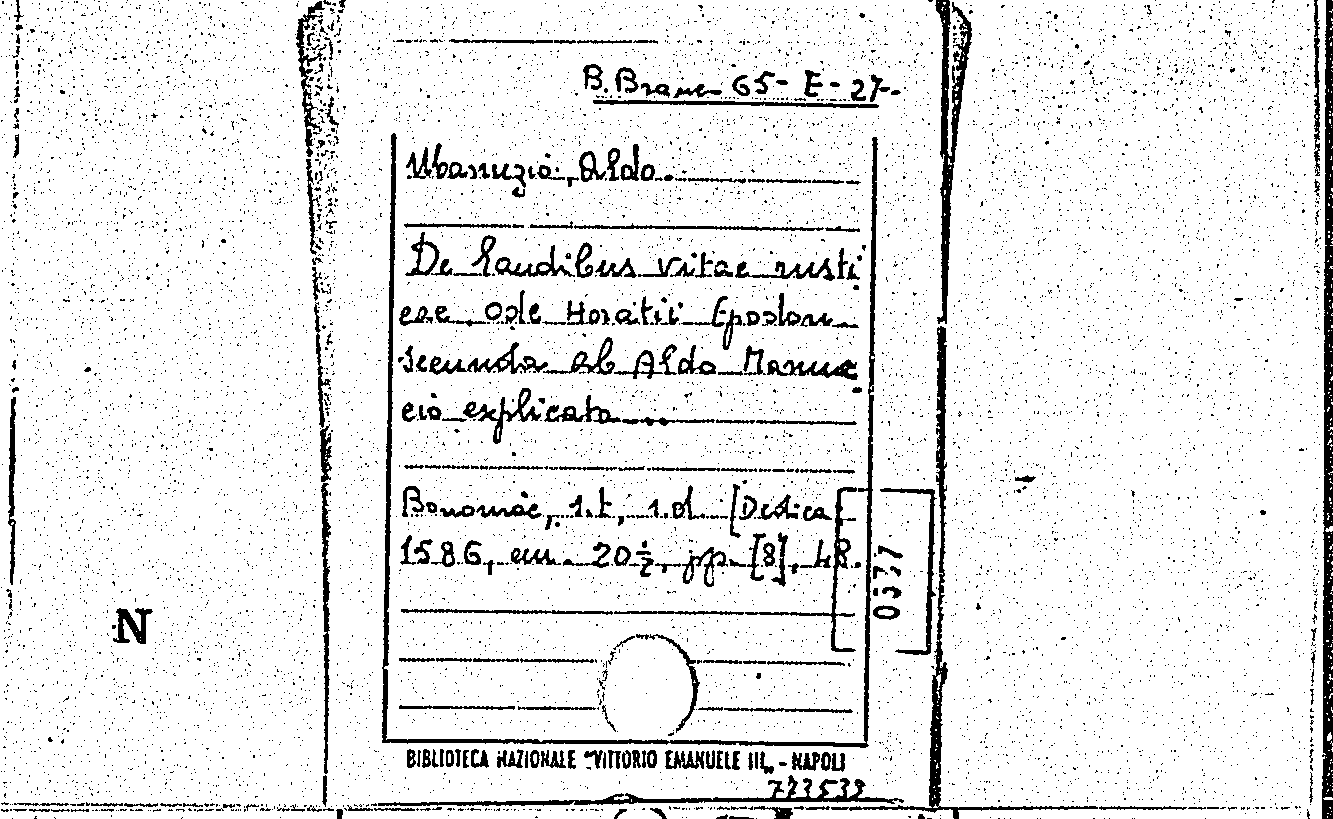 B. Branc 65- E- 27-
Manuzio, Aldo.
De laudibus vitae rusti
cae. Ode Horatii Epodon
secunda ab Aldo Manuc
cio explicata...
Bononiae, s.t., s.d. [Dedica
1586, cm. 20½, pp. [8], 48.
0577
N
BIBLIOTECA NAZIONALE "VITTORIO EMANUELE III„ - NAPOLI